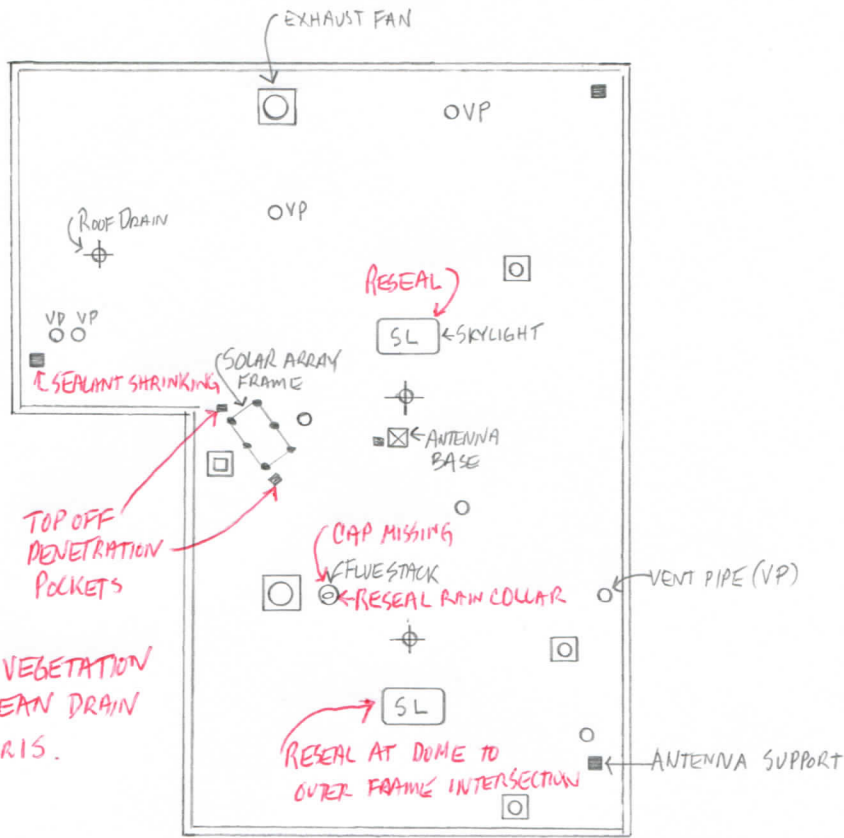 EXHAUST FAN
VP
VP
ROOF DRAIN
RESEAL
VP VP
SL
SKYLIGHT
SEALANT SHRINKING
SOLAR ARRAY
FRAME
ANTENNA
BASE
TOP OFF
PENETRATION
POCKETS
CAP MISSING
FLUE STACK
RESEAL RAIN COLLAR
VENT PIPE (VP)
VEGETATION
EAN DRAIN
RIS.
SL
RESEAL AT DOME TO
OUTER FRAME INTERSECTION
ANTENNA SUPPORT